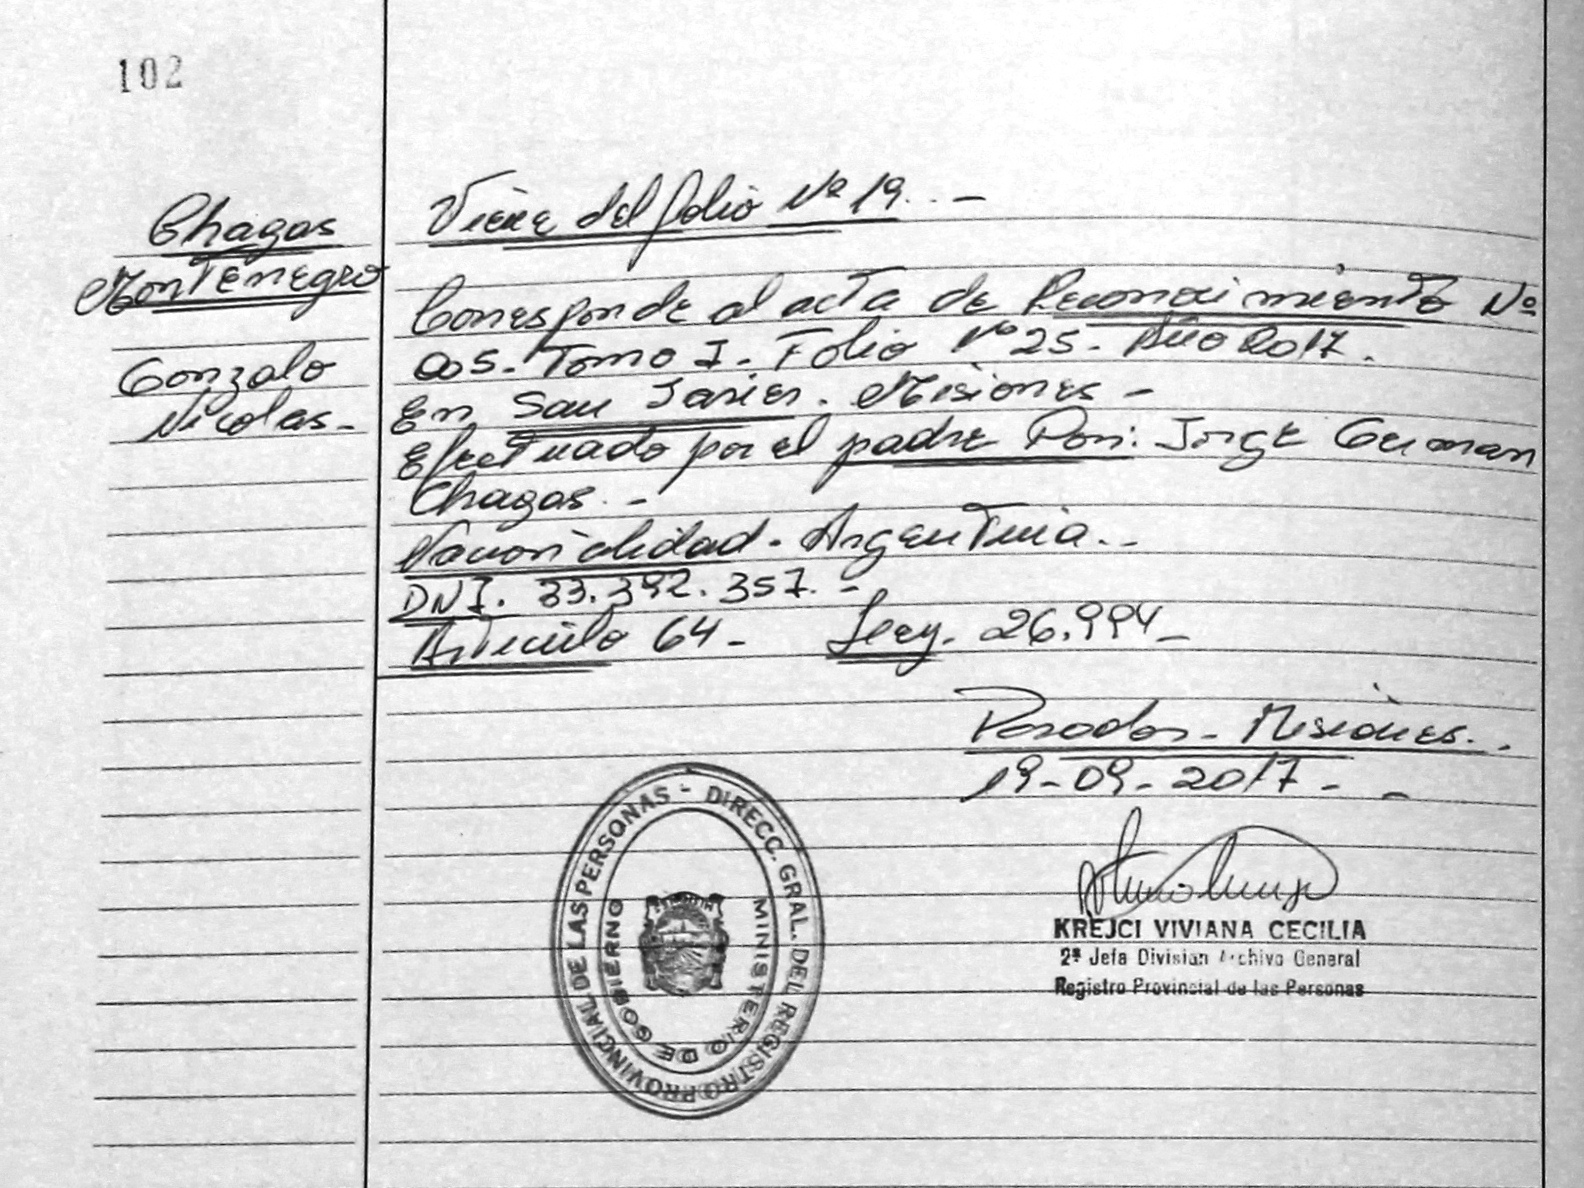 102
Chagas
Montenegro
Gonzalo
Nicolas-
Viene del folio Nº 19. -
Corresponde al acta de Reconocimiento Nº
005. Tomo I. Folio Nº 25. Año 2017.
En San Javier. Misiones -
Efectuado por el padre Don: Jorge German
Chagas. -
Nacionalidad. Argentina. -
DNI. 33.392.357. -
Artículo 64 - Ley. 26.994 -
Posadas - Misiones.
19-09-2017 - -
DIRECC. GRAL. DEL REGISTRO PROVINCIAL DE LAS PERSONAS -
MINISTERIO DE GOBIERNO
KREJCI VIVIANA CECILIA
2ª Jefa División Archivo General
Registro Provincial de las Personas